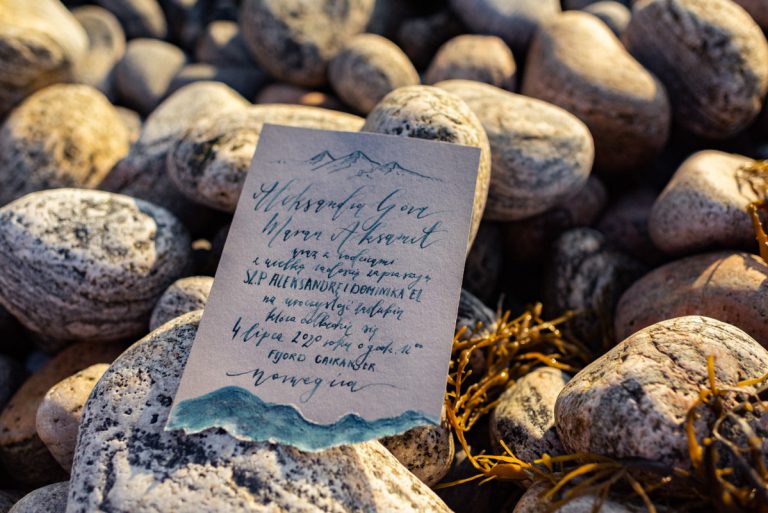 Aleksandra Gora
Marcin Aksamit
wraz z rodzicami
z wielką radością zapraszają
SZ.P ALEKSANDRĘ I DOMINIKA EL
na uroczystość ślubną
która odbędzie się
4 lipca 2020 roku o godz. 11⁰⁰
FJORD GAIRANGER
Norwegia